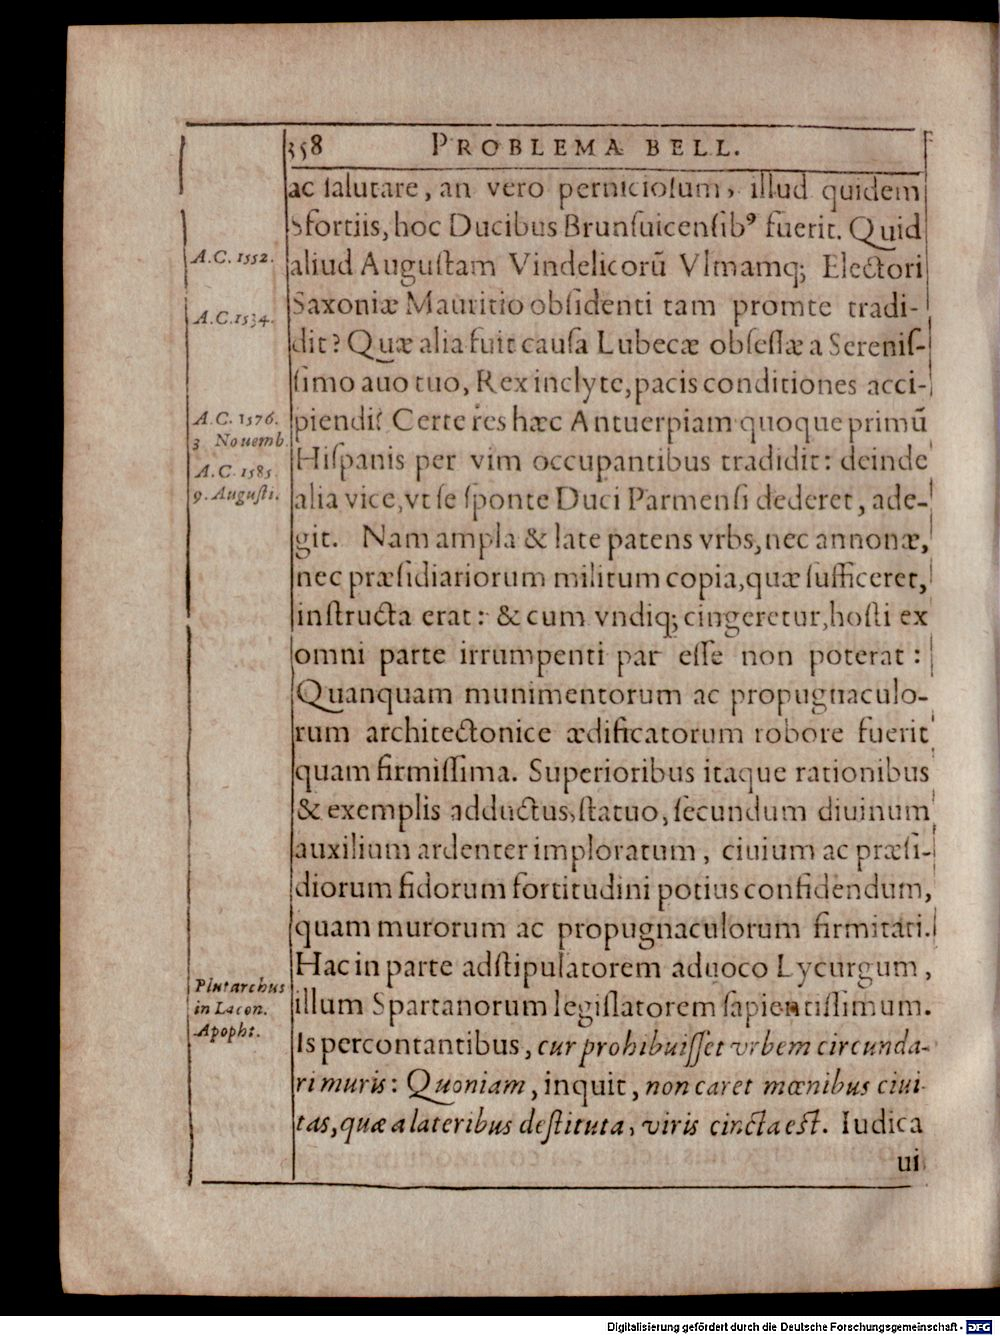 358 PROBLEMA BELL.
ac ſalutare, an vero pernicioſum, illud quidem
Sfortiis, hoc Ducibus Brunſuicenſibꝰ fuerit. Quid
A.C. 1552.
aliud Auguſtam Vindelicorũ Vlmamq; Electori
Saxoniæ Mauritio obſidenti tam promte tradi-
A.C. 1534.
dit? Quæ alia fuit cauſa Lubecæ obſeſſæ a Sereniſ-
ſimo auo tuo, Rex inclyte, pacis conditiones acci-
A.C. 1576.
3 Nouemb.
piendi? Certe res hæc Antuerpiam quoque primũ
Hiſpanis per vim occupantibus tradidit: deinde
A.C. 1585.
9. Auguſti.
alia vice, vt ſe ſponte Duci Parmenſi dederet, ade-
git. Nam ampla & late patens vrbs, nec annonæ,
nec præſidiariorum militum copia, quæ ſufficeret,
inſtructa erat: & cum vndiq; cingeretur, hoſti ex
omni parte irrumpenti par eſſe non poterat:
Quanquam munimentorum ac propugnaculo-
rum architectonice ædificatorum robore fuerit
quam firmiſſima. Superioribus itaque rationibus
& exemplis adductus, ſtatuo, ſecundum diuinum
auxilium ardenter imploratum, ciuium ac præſi-
diorum fidorum fortitudini potius confidendum,
quam murorum ac propugnaculorum firmitati.
Hac in parte adſtipulatorem aduoco Lycurgum,
Plutarchus
in Lacon.
Apopht.
illum Spartanorum legiſlatorem ſapientiſſimum.
Is percontantibus, cur prohibuiſſet vrbem circunda-
ri muris: Quoniam, inquit, non caret mœnibus ciui-
tas, quæ a lateribus deſtituta, viris cincta eſt. Iudica
ui
Digitalisierung gefördert durch die Deutsche Forschungsgemeinschaft - DFG